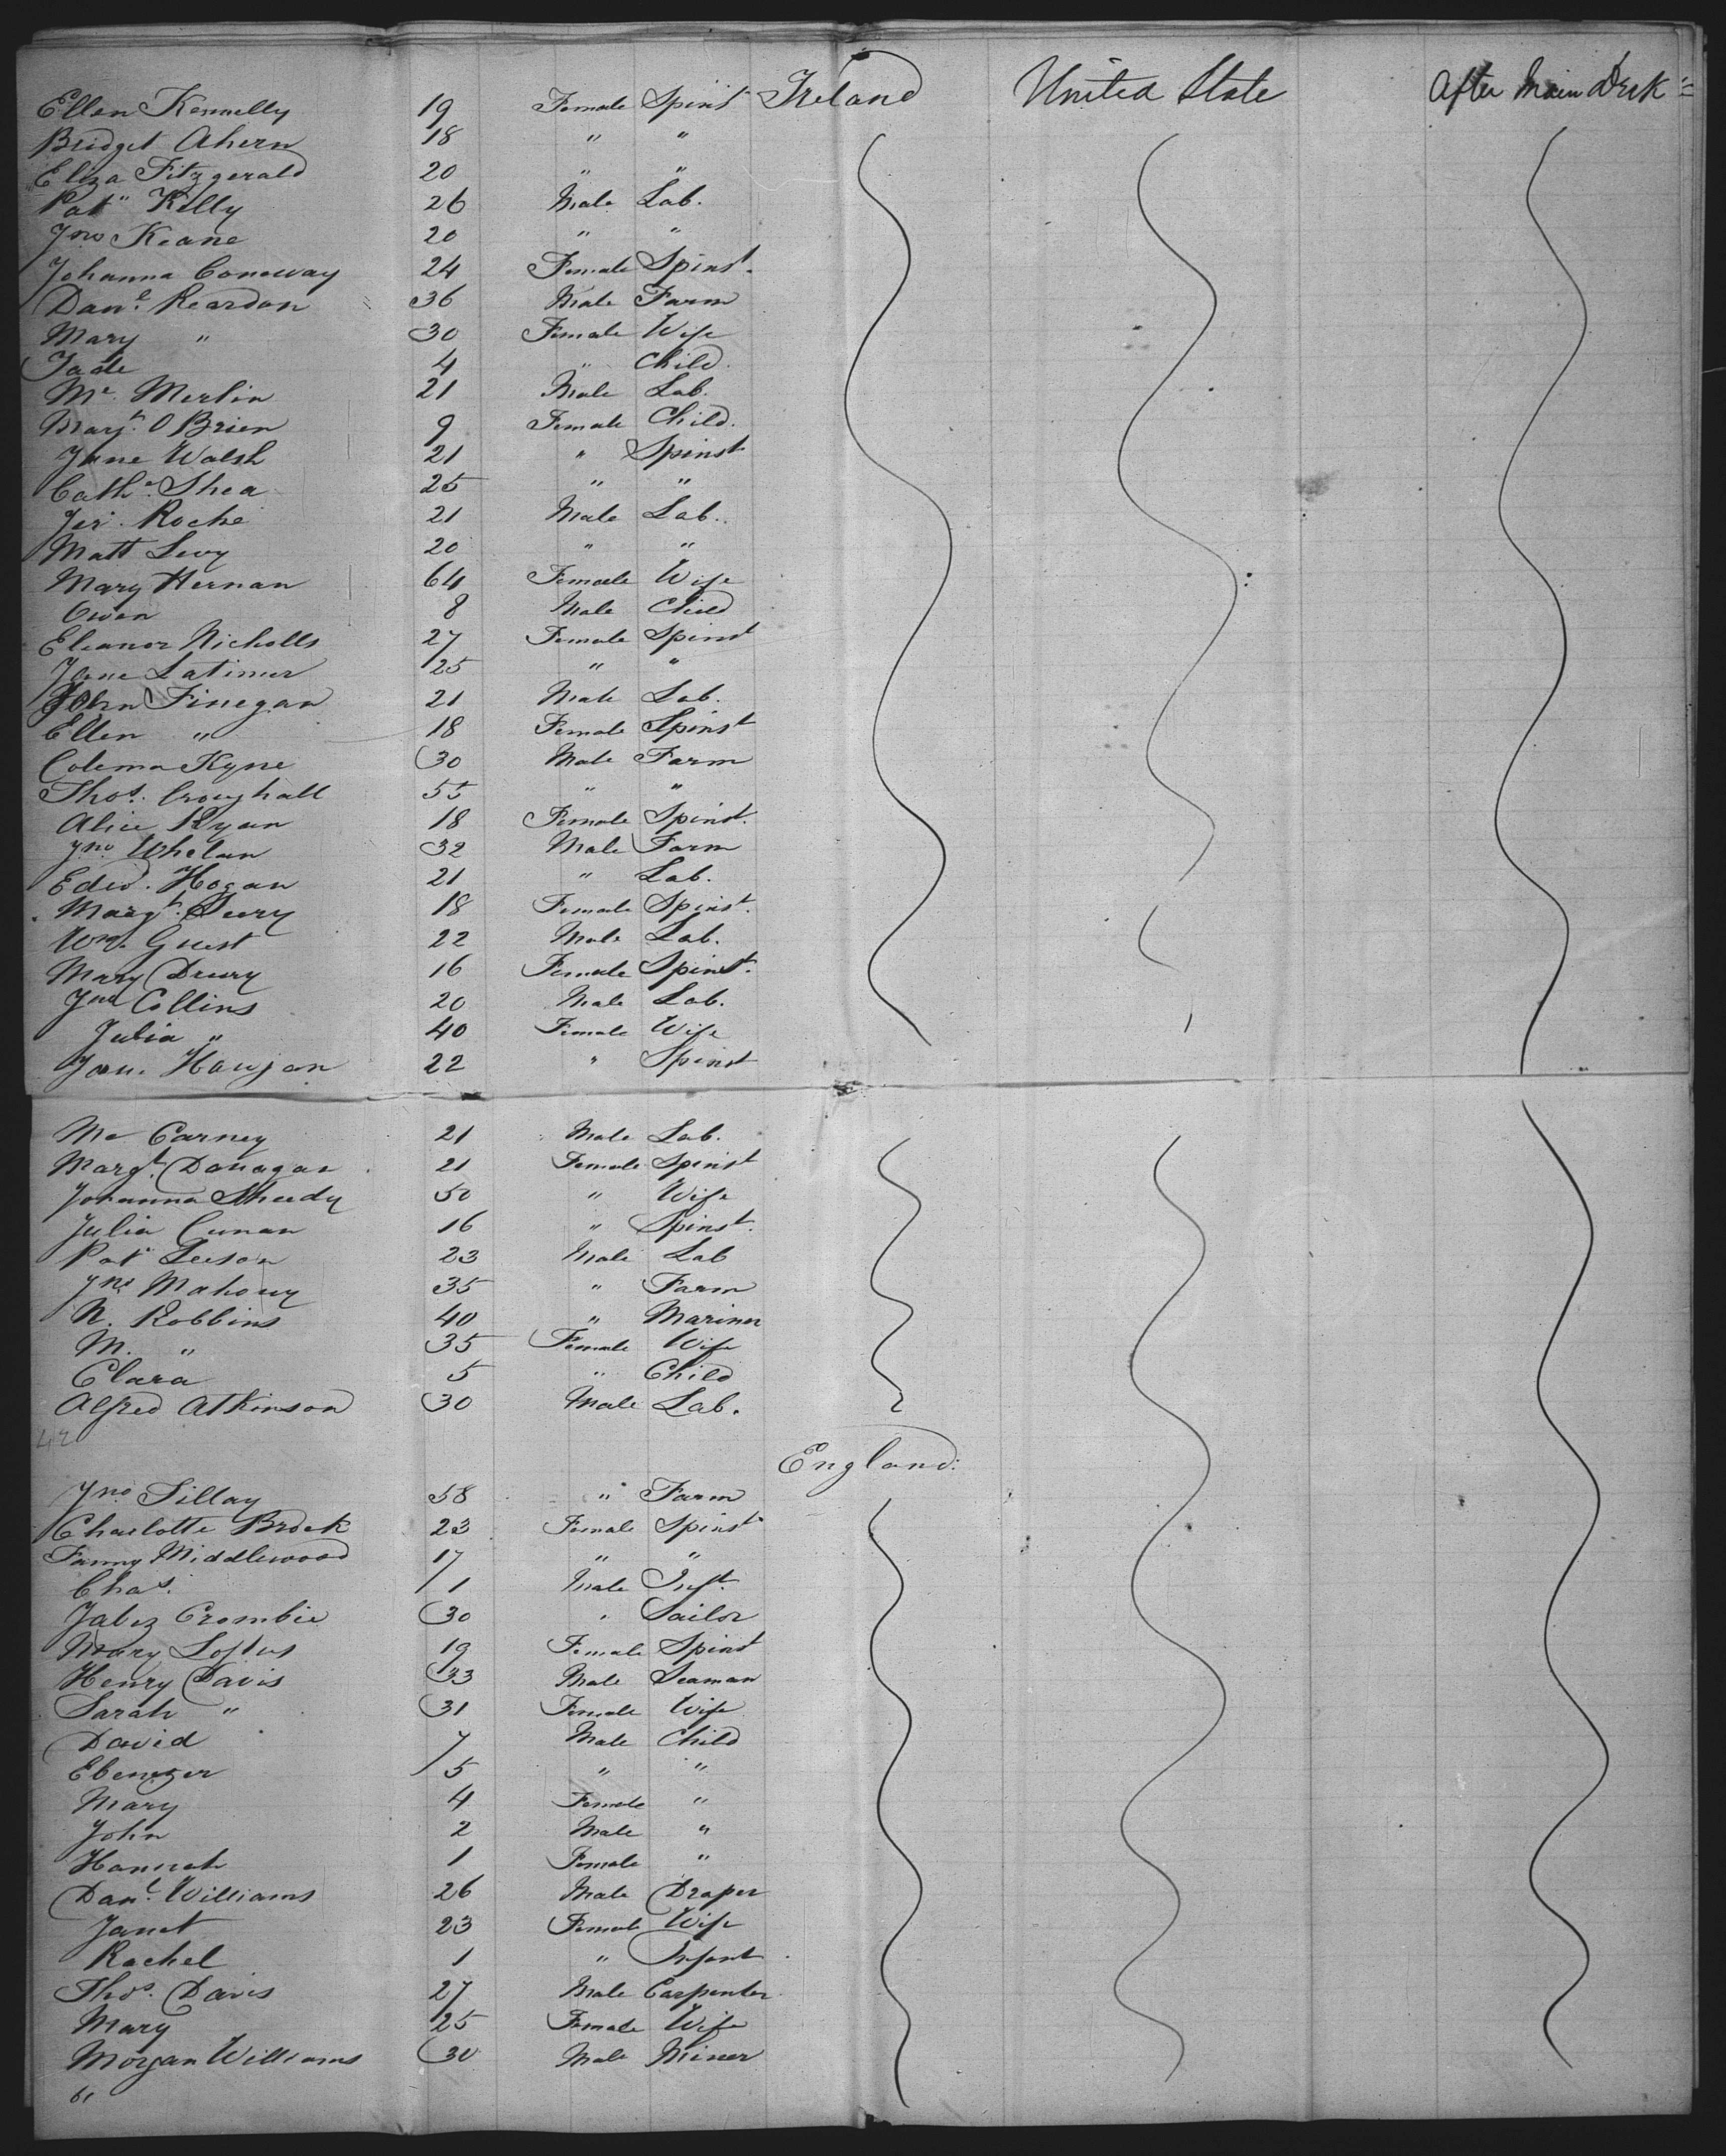 Ellen Kennelly 19 Female Spinst Ireland United State After Main Deck
Bridget Ahern 18 " "
Eliza Fitzgerald 20 " "
Pat Kelly 26 Male Lab.
Jno Keane 20 " "
Johanna Conoway 24 Female Spinst.
Danl. Reardon 36 Male Farm
Mary " 30 Female Wife
Jade 4 " Child.
Mc. Merlin 21 Male Lab.
Margt. O Brien 9 Female Child.
Jane Walsh 21 " Spinst
Cathe. Shea 25 " "
Jer. Roche 21 Male Lab.
Matt Levy 20 " "
Mary Hernan 64 Female Wife
Owen 8 Male Child
Eleanor Nicholls 27 Female Spinst
Jane Latimer 25 " "
John Finegan 21 Male Lab.
Ellen " 18 Female Spinst
Colema Kyne 30 Male Farm
Thos. Croughall 55 " "
Alice Ryan 18 Female Spinst.
Jno. Whelan 32 Male Farm
Edwd. Hogan 21 " Lab.
Margt. 18 Female Spinst.
Wm. Guest 22 Male Lab.
Mary Drury 16 Female Spinst.
Jno Collins 20 Male Lab.
Julia " 40 Female Wife
22 " Spinst
Mc Carney 21 Male Lab.
Margt. Donagan 21 Female Spinst
Johanna Sheedy 50 " Wife
Julia Cunan 16 " Spinst.
Pat Leeson 23 Male Lab
Jno. Mahony 35 " Farm
N. Robbins 40 " Mariner
M. " 35 Female Wife
Clara 5 " Child
Alfred Atkinson 30 Male Lab.
42
England.
Jno. Sillay 58 " Farm
Charlotte Brock 23 Female Spinst
Fanny Middlewood 17 " "
Chas. 1 Male Inft.
Jabez Crombie 30 " Sailor
Mary Loftus 19 Female Spinst
Henry Davis 33 Male Seaman
Sarah " 31 Female Wife
David 7 Male Child
Ebenezer 5 " "
Mary 4 Female "
John 2 Male "
Hannah 1 Female "
Danl. Williams 26 Male Draper
Janet 23 Female Wife
Rachel 1 " Infant
Thos. Davis 27 Male Carpenter
Mary 25 Female Wife
Morgan Williams 30 Male Miner
61